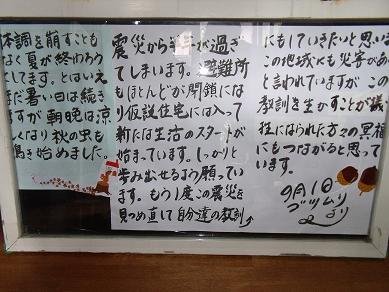 体調を崩すことも
なく夏が終わろう
としてます。とはいえ
まだ暑い日は続き
ますが朝晩は涼
しくなり秋の虫も
鳴き始めました。
震災から半年が過ぎ
てしまいます。避難所
もほとんどが閉鎖にな
り仮設住宅には入って
新たな生活のスタートが
始まっています。しっかりと
歩み出せるよう願ってい
ます。もう1度この震災を
見つめ直して自分達の教訓
にもしていきたいと思いま
この地域にも災害があ
と言われていますが この
教訓を生かすことが犠
牲になられた方々の冥福
にもつながると思って
います。
9月1日
ゴツムリ
より